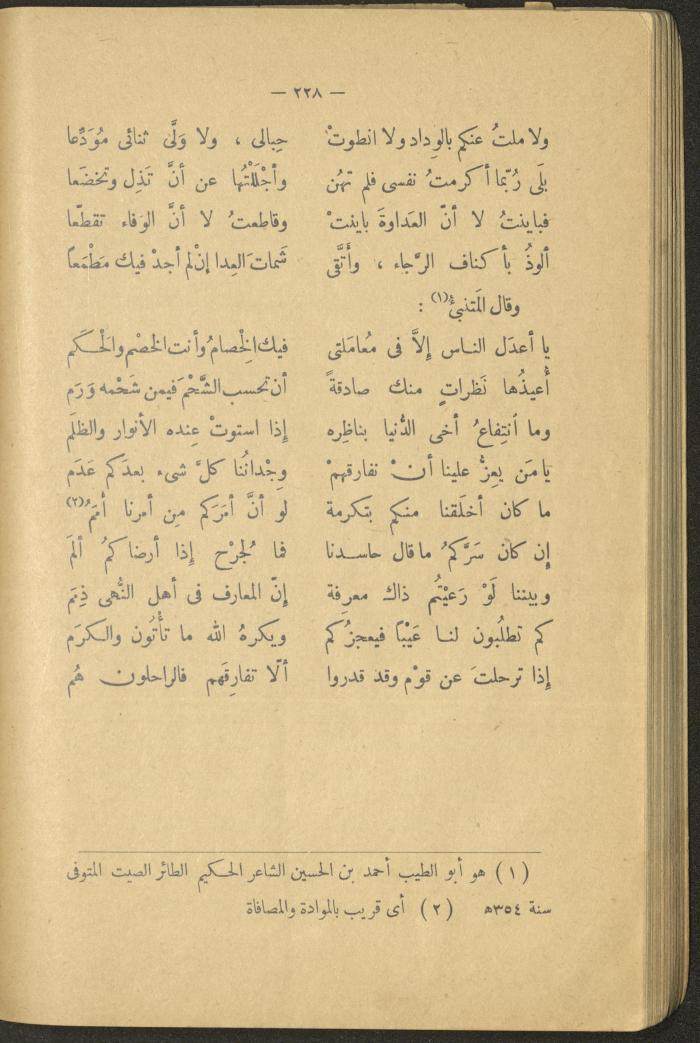 — ٢٢٨ —
ولا ملتُ عنكم بالوِداد ولا انطوتْ حِبالى ، ولا وَلَّى ثنائى مُوَدِّعا
بلَى رُبّما أكرمتُ نفسى فلم تهُن وأجْلَلْتُها عن أنَّ تَذِل وتخضَعا
فباينتُ لا أنّ العَداوةَ باينتْ وقاطعتُ لا أنَّ الوَفاء تقطّعا
ألوذُ بأكناف الرَّجاء ، وأتَّقى شَمات العِدا إنْ لم أجدْ فيك مَطْمَعاً
وقال المَتنبىُّ(١) :
يا أعدَل النـاس إلاَّ فى مُعامَلتى فيك الِخصامُ وأنت الخصْم والحْـكَم
أُعيذُها نَظراتٍ منك صادقةً أن تحسب الشَّحْمَ فيمن شَحْمه وَرَم
وما اُنتِفاعُ أخى الدُّنيا بناظِره إذا استوتْ عِنده الأنوار والظلَم
يا مَن يعِزُّ علينا أنْ نفارقهمْ وِجْدانُنا كلَّ شىء بعدَكم عَدَم
ما كان أخلَقنا منكم بتكرمة لو أنَّ أمْرَكم مِن أمرنا أمَمُ(٢)
إن كان سَرَّكمُ ما قال حاسـدنا فما لُجرْح إذا أرضاكمُ ألَم
وبيننا لَوْ رَعَيْتُم ذاك معرِفة إنّ المعارف فى أهل النُّهى ذِمَم
كم تطلُبون لنـا عَيْبًا فيعجزُكم ويكرهُ الله ما تأْتُون والـكرَم
إذا ترحلتَ عن قوْم وقد قدروا ألّا تفارِقَهم فالراحلون هُم
(١) هو أبو الطيب أحمد بن الحسين الشاعر الحـكيم الطائر الصيت المتوفى
سنة ٣٥٤هـ (٢) أى قريب بالموادة والمصافاة